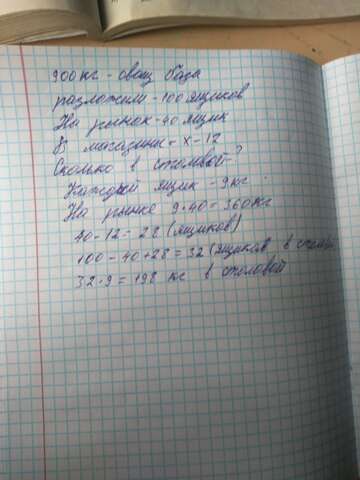 900 кг - овощ база
разложили - 100 ящиков
На рынок - 40 ящик
В магазины - х - 12
Сколько в столовой - ?
Каждый ящик - 9 кг.
На рынке 9·40 = 360 кг
40 - 12 = 28 (ящиков)
100 - 40 + 28 = 32 (ящиков в столов
32·9 = 198 кг в столовой